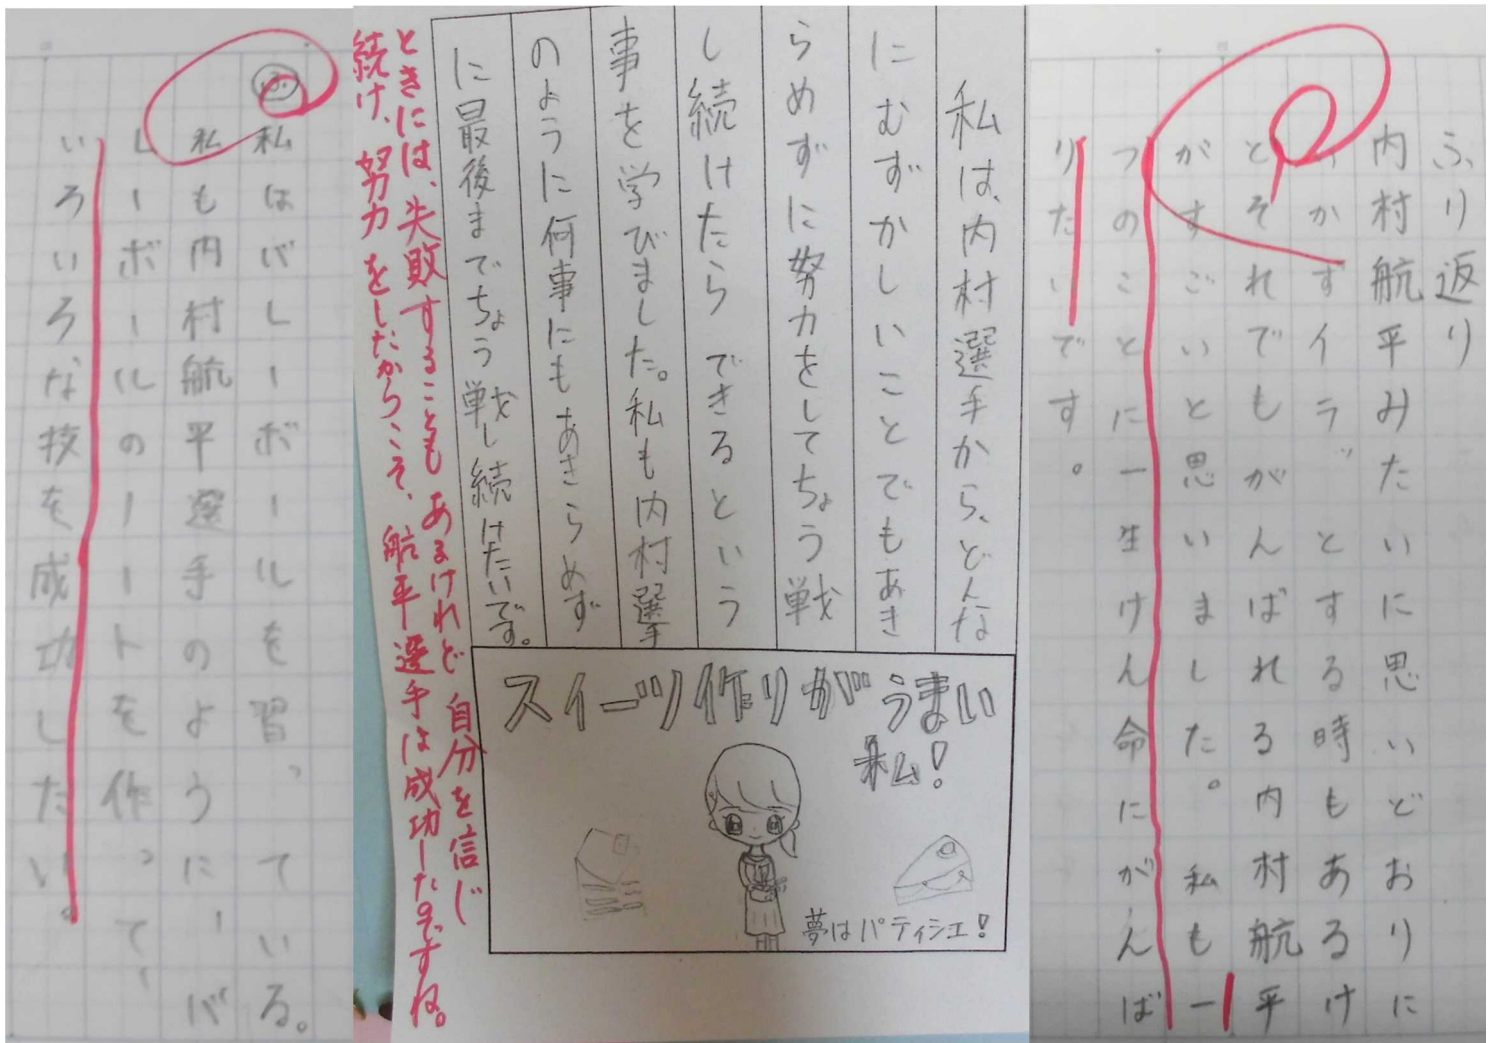 ふり返り
内村航平みたいに思いどおりに
いかずイライラとする時もあるけ
とそれでもがんばれる内村航平
がすごいと思いました。私も一
つのことに一生けん命にがんば
りたいです。
私は、内村選手から、どんな
にむずかしいことでもあき
らめずに努力をしてちょう戦
し続けたらできるという
事を学びました。私も内村選手
のように何事にもあきらめず
に最後までちょう戦し続けたいです。
ときには、失敗することもあるけれど自分を信じ
続け、努力をしたからこそ、航平選手は成功したのですね。
スイーツ作りがうまい
私！
夢はパティシエ！
ふ
私はバレーボールを習っている。
私も内村航平選手のように、バ
レーボールのノートを作って、
いろいろな技を成功したい。